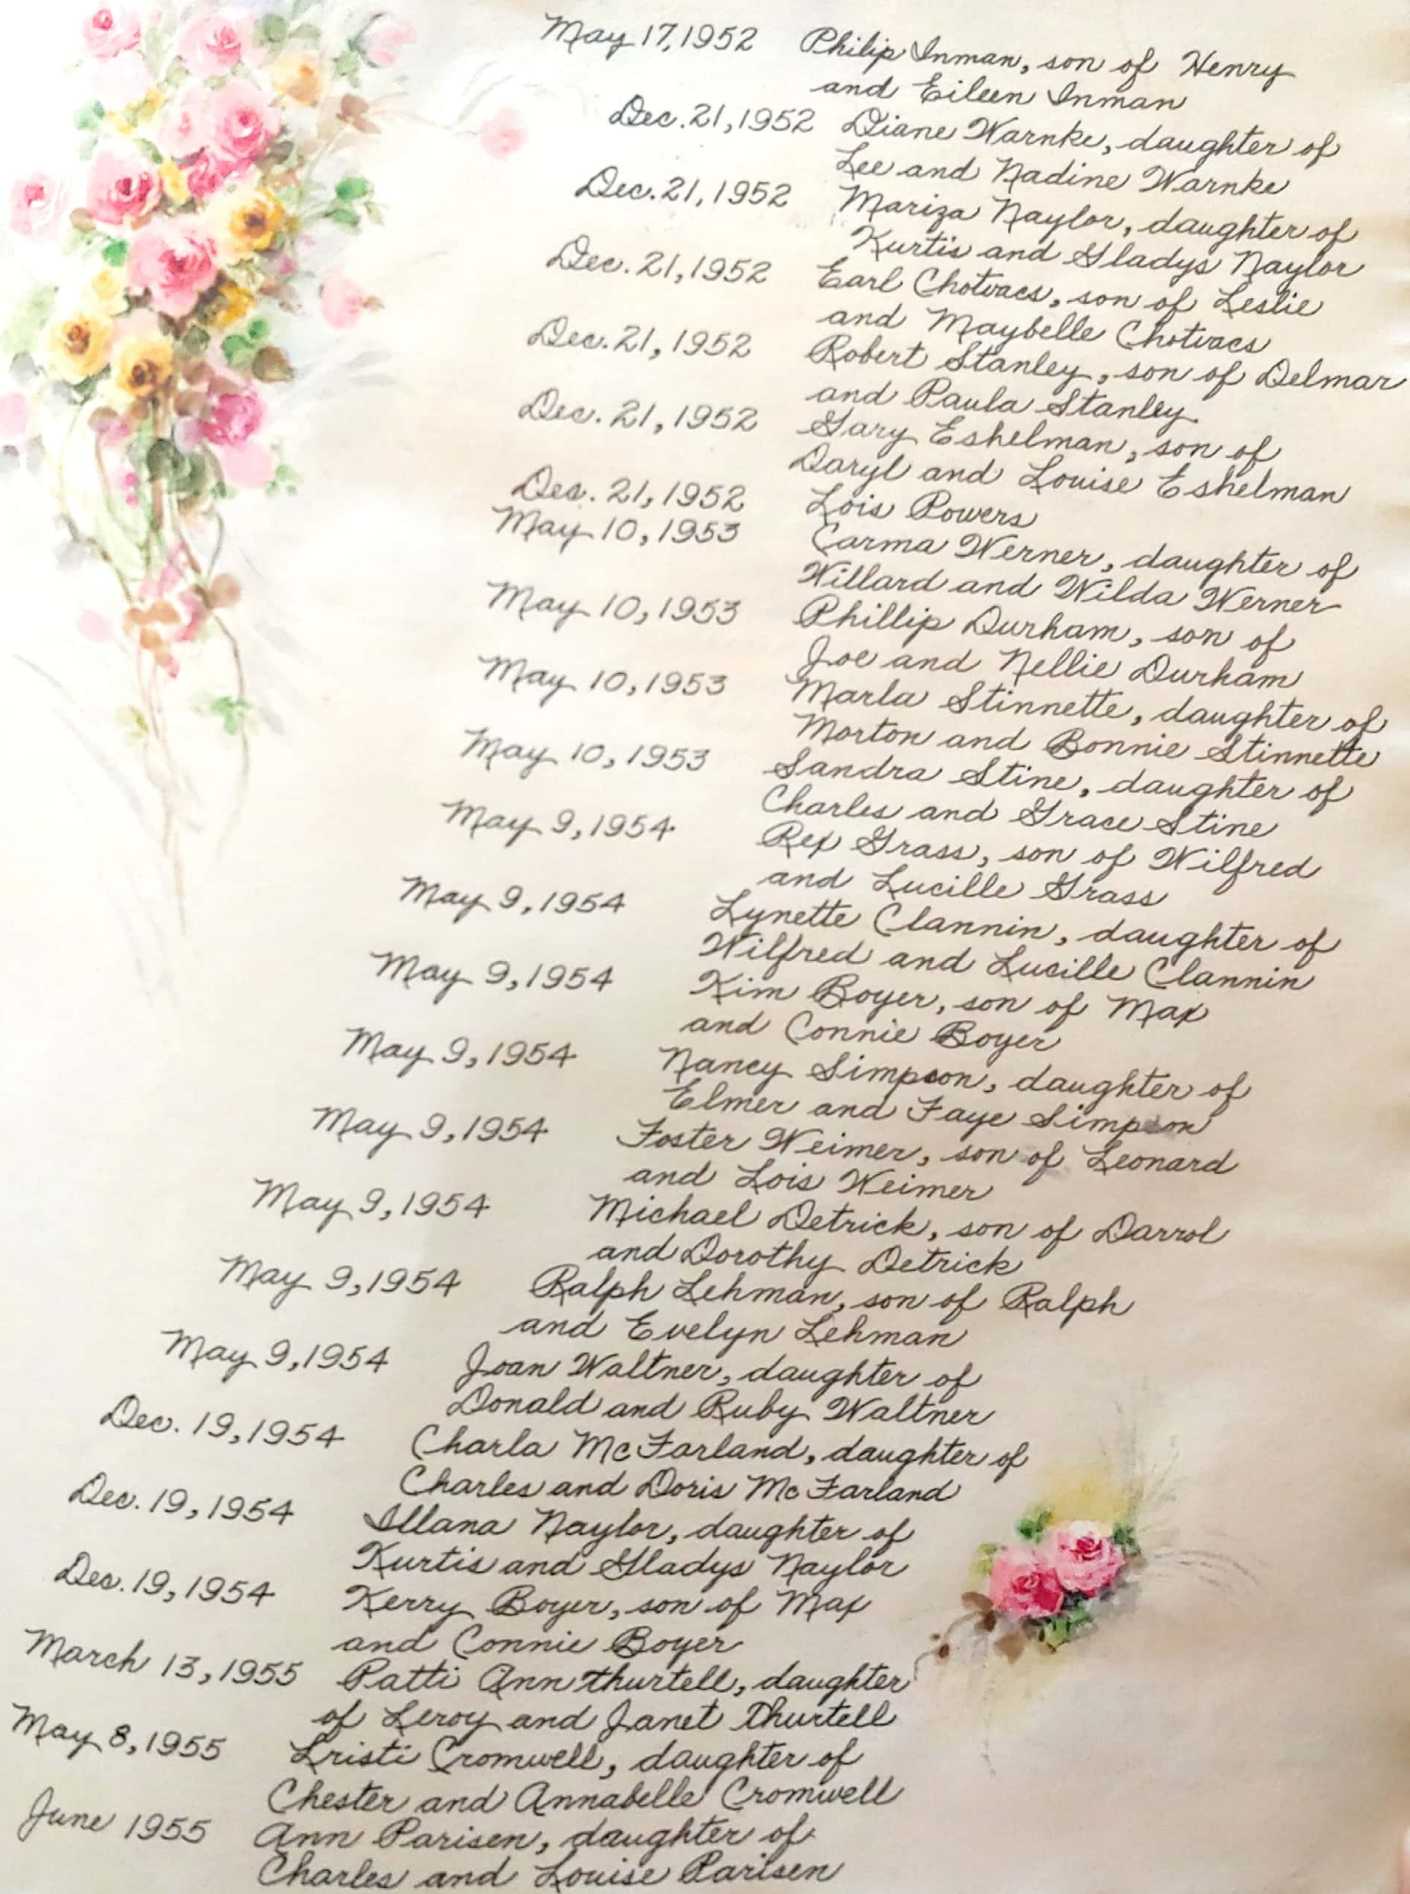 May 17, 1952 Philip Inman, son of Henry
and Eileen Inman
Dec. 21, 1952 Diane Warnke, daughter of
Lee and Nadine Warnke
Dec. 21, 1952 Mariza Naylor, daughter of
Kurtis and Gladys Naylor
Dec. 21, 1952 Earl Chotvacs, son of Leslie
and Maybelle Chotvacs
Dec. 21, 1952 Robert Stanley, son of Delmar
and Paula Stanley
Dec. 21, 1952 Gary Eshelman, son of
Daryl and Louise Eshelman
Dec. 21, 1952 Lois Powers
May 10, 1953 Carma Werner, daughter of
Willard and Wilda Werner
May 10, 1953 Phillip Durham, son of
Joe and Nellie Durham
May 10, 1953 Marla Stinnette, daughter of
Morton and Bonnie Stinnette
May 10, 1953 Sandra Stine, daughter of
Charles and Grace Stine
May 9, 1954 Rex Grass, son of Wilfred
and Lucille Grass
May 9, 1954 Lynette Clannin, daughter of
Wilfred and Lucille Clannin
May 9, 1954 Kim Boyer, son of Max
and Connie Boyer
May 9, 1954 Nancy Simpson, daughter of
Elmer and Faye Simpson
May 9, 1954 Foster Weimer, son of Leonard
and Lois Weimer
May 9, 1954 Michael Detrick, son of Darrol
and Dorothy Detrick
May 9, 1954 Ralph Lehman, son of Ralph
and Evelyn Lehman
May 9, 1954 Joan Waltner, daughter of
Donald and Ruby Waltner
Dec. 19, 1954 Charla McFarland, daughter of
Charles and Doris McFarland
Dec. 19, 1954 Illana Naylor, daughter of
Kurtis and Gladys Naylor
Dec. 19, 1954 Kerry Boyer, son of Max
and Connie Boyer
March 13, 1955 Patti Ann Thurtell, daughter
of Leroy and Janet Thurtell
May 8, 1955 Kristi Cromwell, daughter of
Chester and Annabelle Cromwell
June 1955 Ann Parisen, daughter of
Charles and Louise Parisen